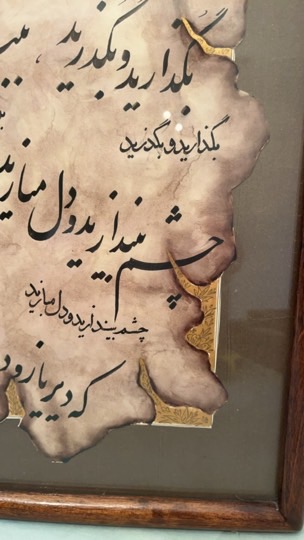 بگذارید و بگذرید
بگذارید و بگذرید
چشم بیندازید و دل مبازید
چشم بیندازید و دل مبازید
که دیر یا زود